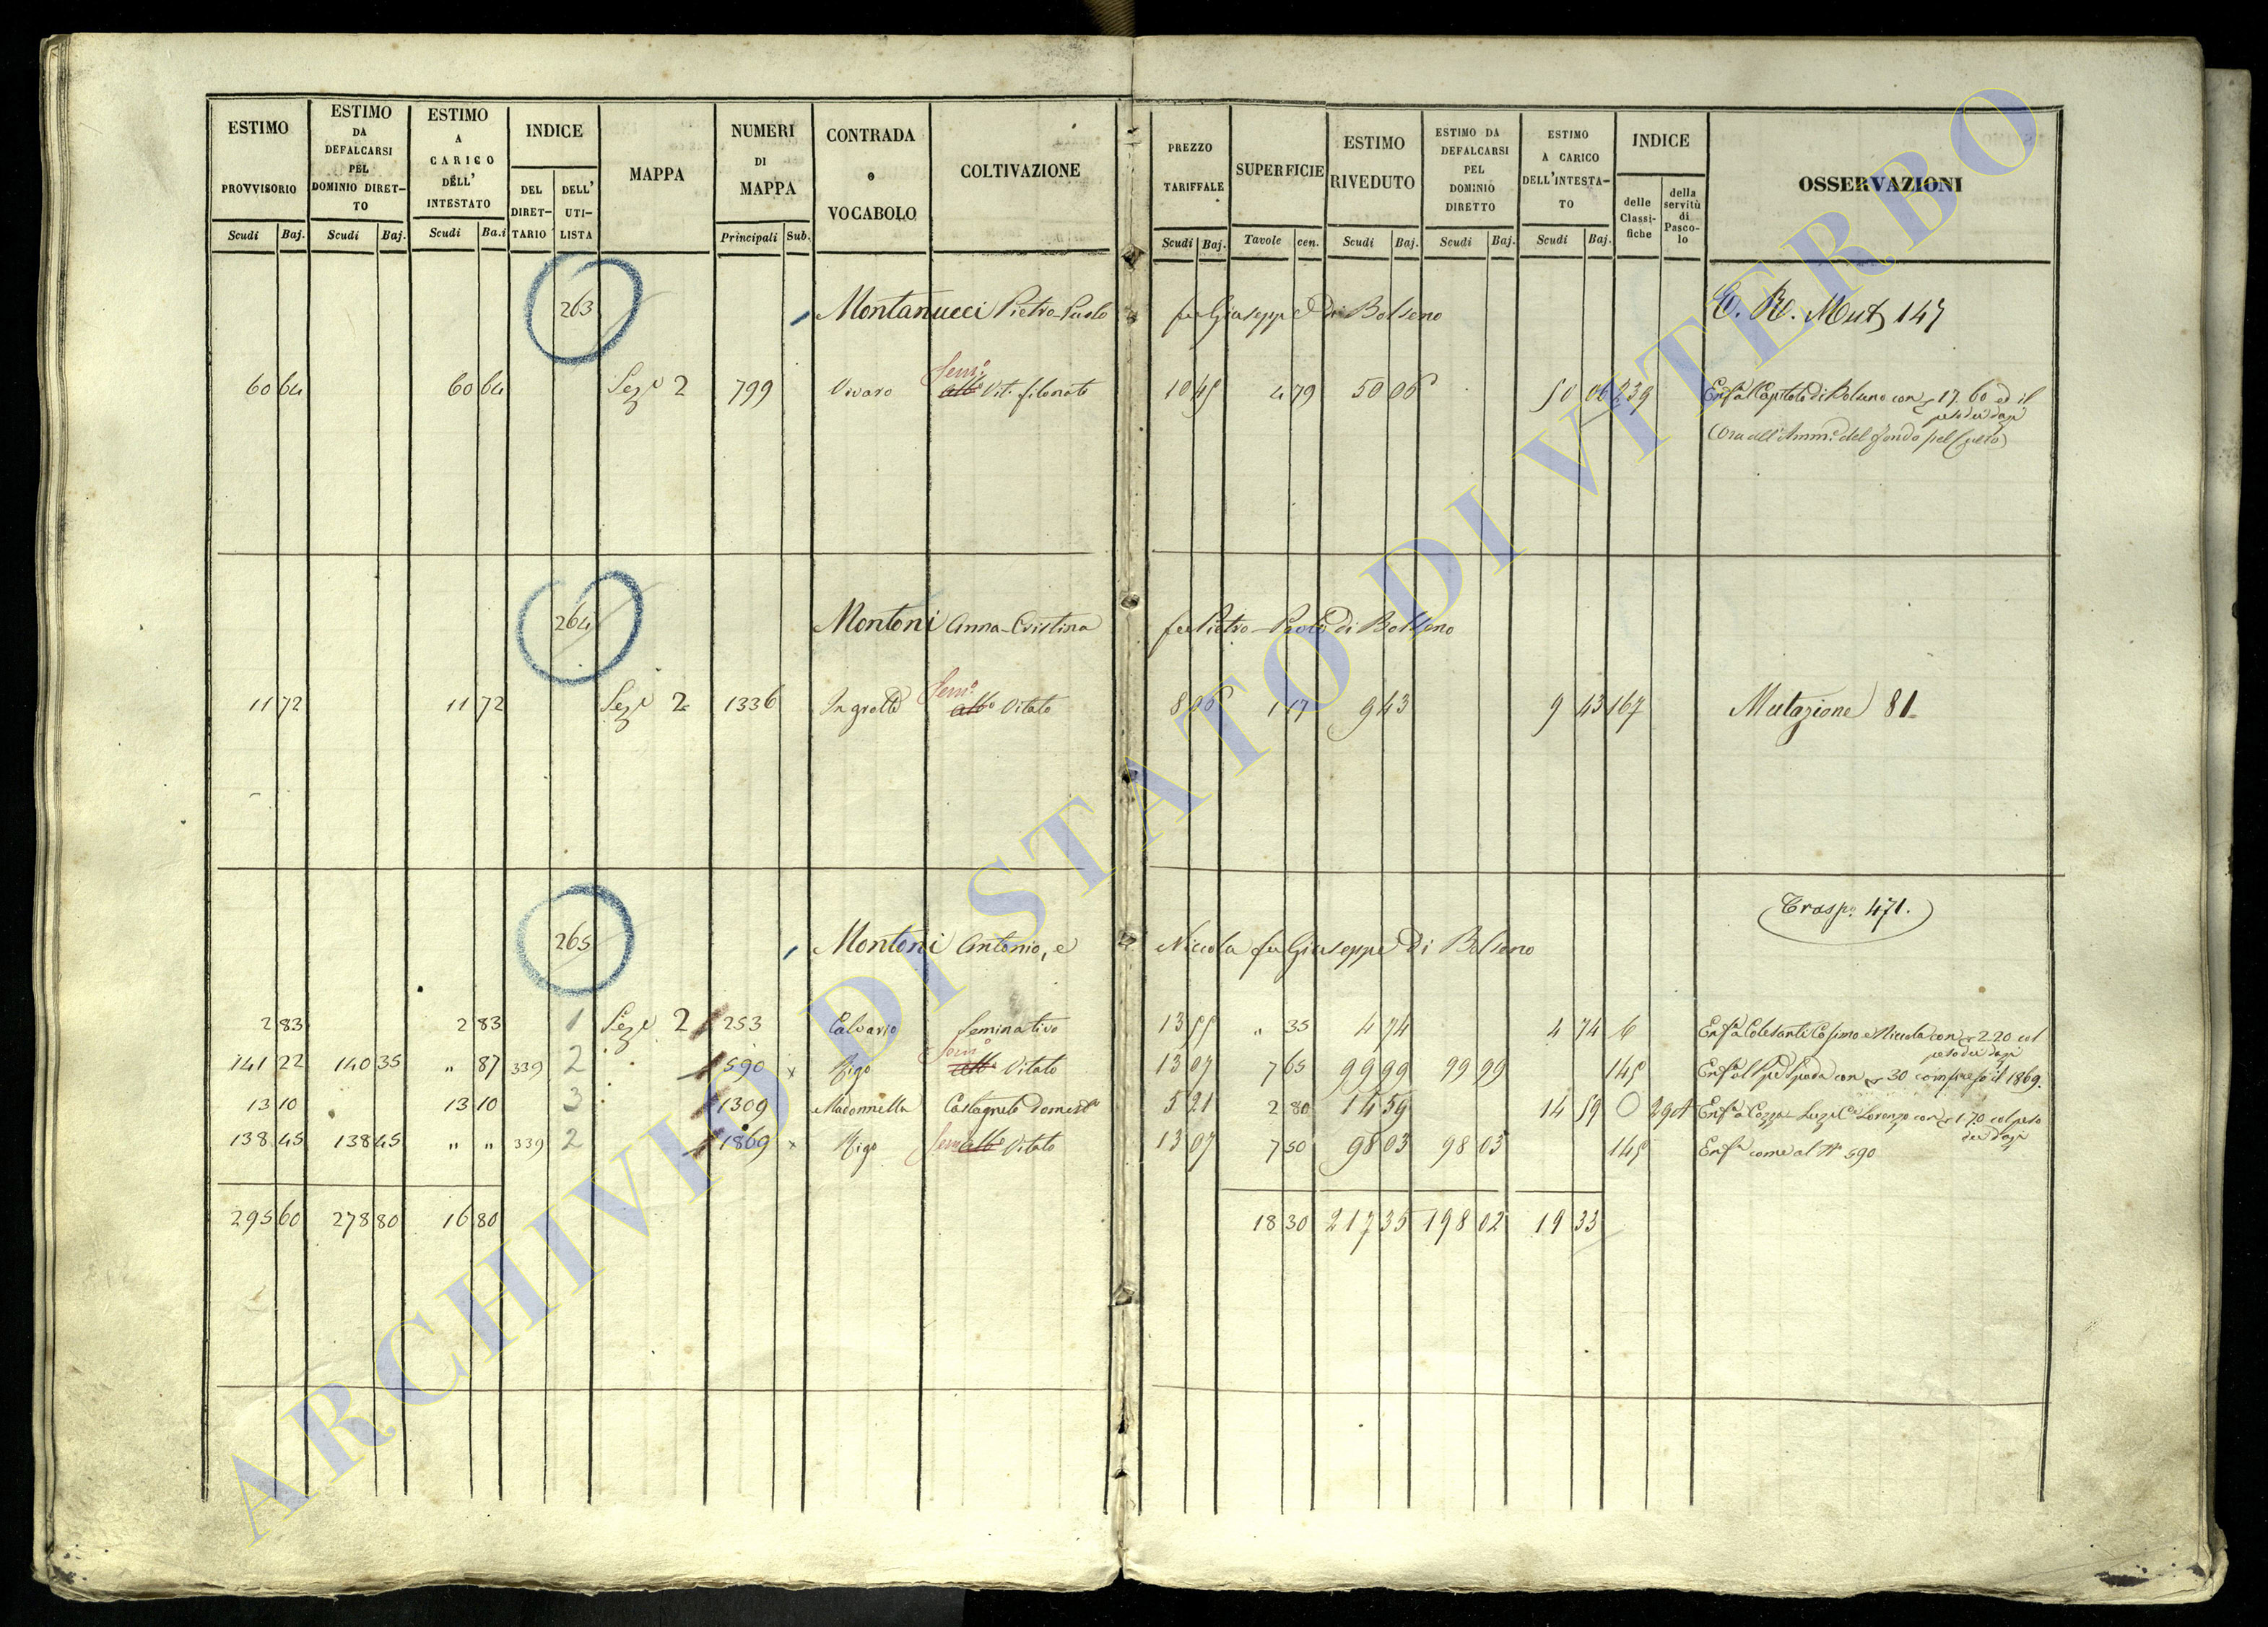 ESTIMO PROVVISORIO Scudi Baj.
ESTIMO DA DEFALCARSI PEL DOMINIO DIRETTO Scudi Baj.
ESTIMO A CARICO DELL' INTESTATO Scudi Ba.i
INDICE DEL DIRETTARIO DELL' UTILISTA
MAPPA
NUMERI DI MAPPA Principali Sub.
CONTRADA o VOCABOLO
COLTIVAZIONE
PREZZO TARIFFALE Scudi Baj.
SUPERFICIE Tavole cen.
ESTIMO RIVEDUTO Scudi Baj.
ESTIMO DA DEFALCARSI PEL DOMINIO DIRETTO Scudi Baj.
ESTIMO A CARICO DELL'INTESTATO Scudi Baj.
INDICE delle Classifiche della servitù di Pascolo
OSSERVAZIONI
263 Montanucci Pietro-Paolo fu Giuseppe Di Bolseno Mut 147
60 64 60 64 Sez. 2 799 Vivaro Sem.o Vit. filonato 10 45 4 79 50 06 50 06 239 Enf.a al Capitolo di Bolseno con 17. 60 ed il
peso dei dazi
(Ora all'Amm.e del Fondo pel Culto)
264 Montoni Anna-Cristina fu Pietro-Paolo di Bolseno
11 72 11 72 Sez. 2 1336 Ingrotte Sem.o alb.o Vitato 8 06 1 17 9 43 9 43 167 Mutazione 81
Trasp. 471.
265 Montoni Antonio, e Niccola fu Giuseppe Di Bolseno
2 83 2 83 1 Sez. 2 253 Calvario Seminativo 13 55 " 35 4 74 4 74 6 Enf.a Colesanti Cosimo e Niccola con 2.20 col
peso dei dazi
141 22 140 35 " 87 339 2 590 x Rigo Sem.o alb.o Vitato 13 07 7 65 99 99 99 99 145 con 30 compreso il 1869.
13 10 13 10 3 1309 Madonnella Castagneto domest.o 5 21 2 80 14 59 14 59 O Enf.a Cozza Lorenzo con 1.70 col peso
dei dazi
138 45 138 45 " " 339 2 1869 x Rigo Sem alb.o Vitato 13 07 7 50 98 03 98 03 145 Enf.a come al N.o 590
295 60 278 80 16 80 18 30 217 35 198 02 19 33
ARCHIVIO DI STATO DI VITERBO